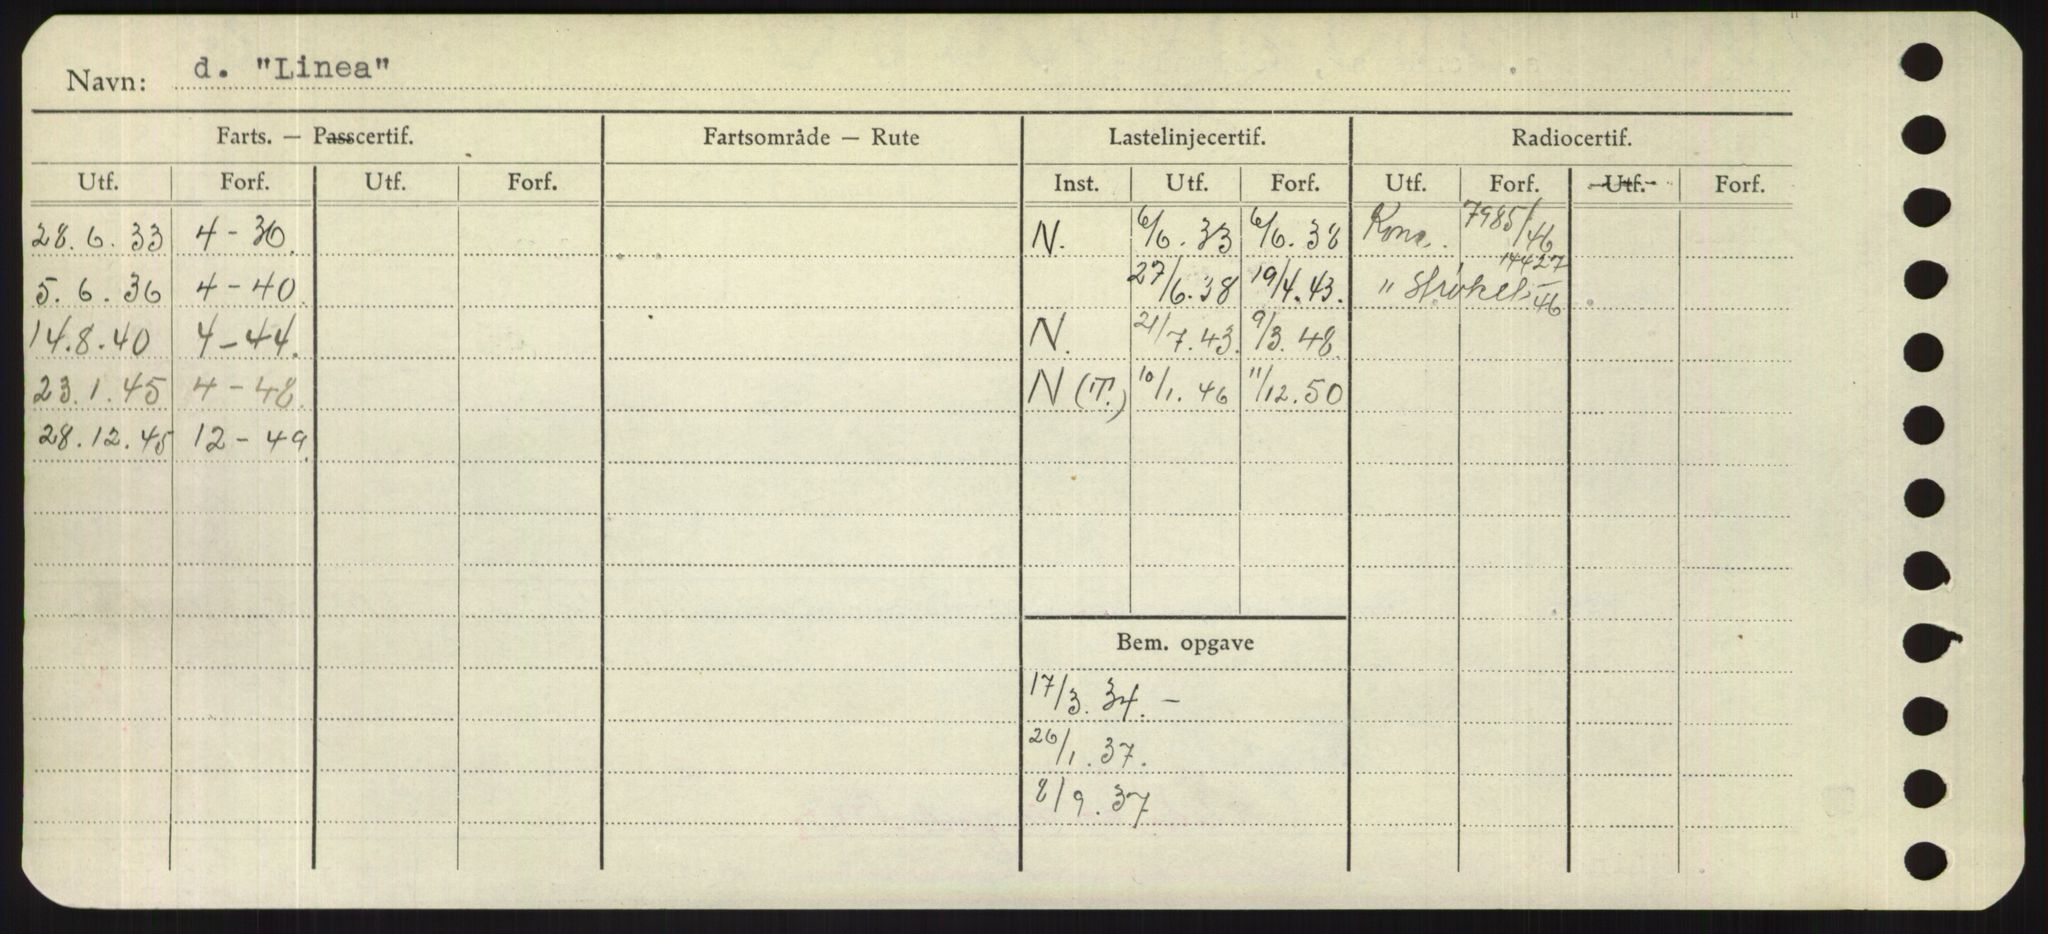 Navn: d. "Linea"
Farts. — Passcertif. Fartsområde — Rute Lastelinjecertif. Radiocertif.
Utf. Forf. Utf. Forf. Inst. Utf. Forf. Utf. Forf. Utf. Forf.
28.6.33 4-36. N. 6/6.33 6/6.38 Konc. 7985/46
5.6.36 4-40 27/6.38 19/4.43. " strøket 14427/46
14.8.40 4-44. N. 21/7.43. 9/3.48
23.1.45 4-48. N (T.) 10/1.46 11/12.50
28.12.45 12-49.
Bem. opgave
17/3.34. —
26/1.37.
8/9.37